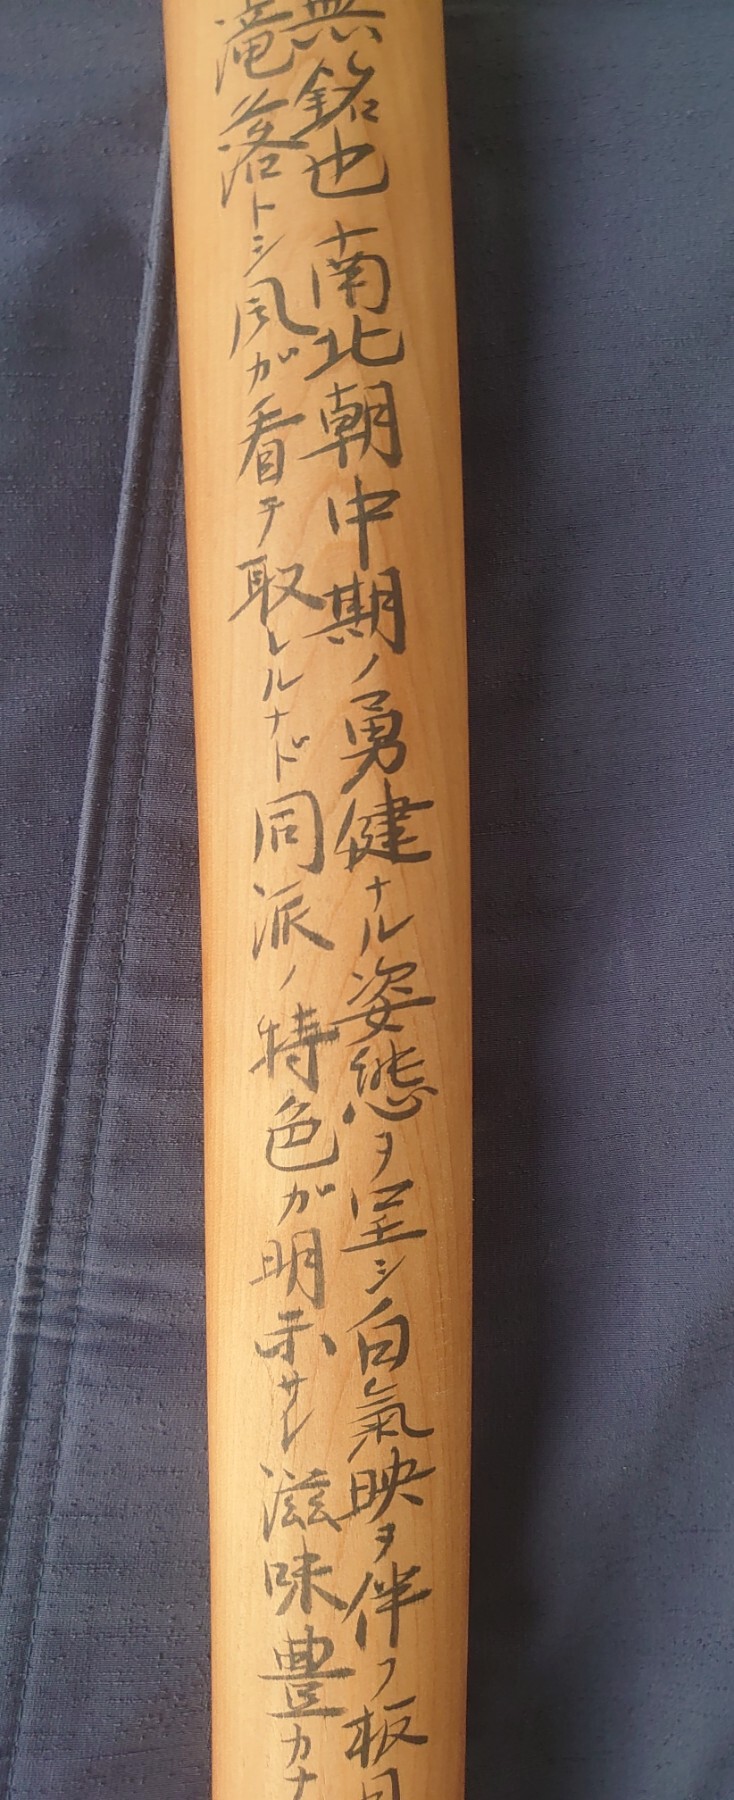 無銘也南北朝中期ノ勇健ナル姿態ヲ呈シ白氣映ヲ伴フ板目
滝落トシ風が看テ取レルナド同派ノ特色が明示サレ滋味豊カナ